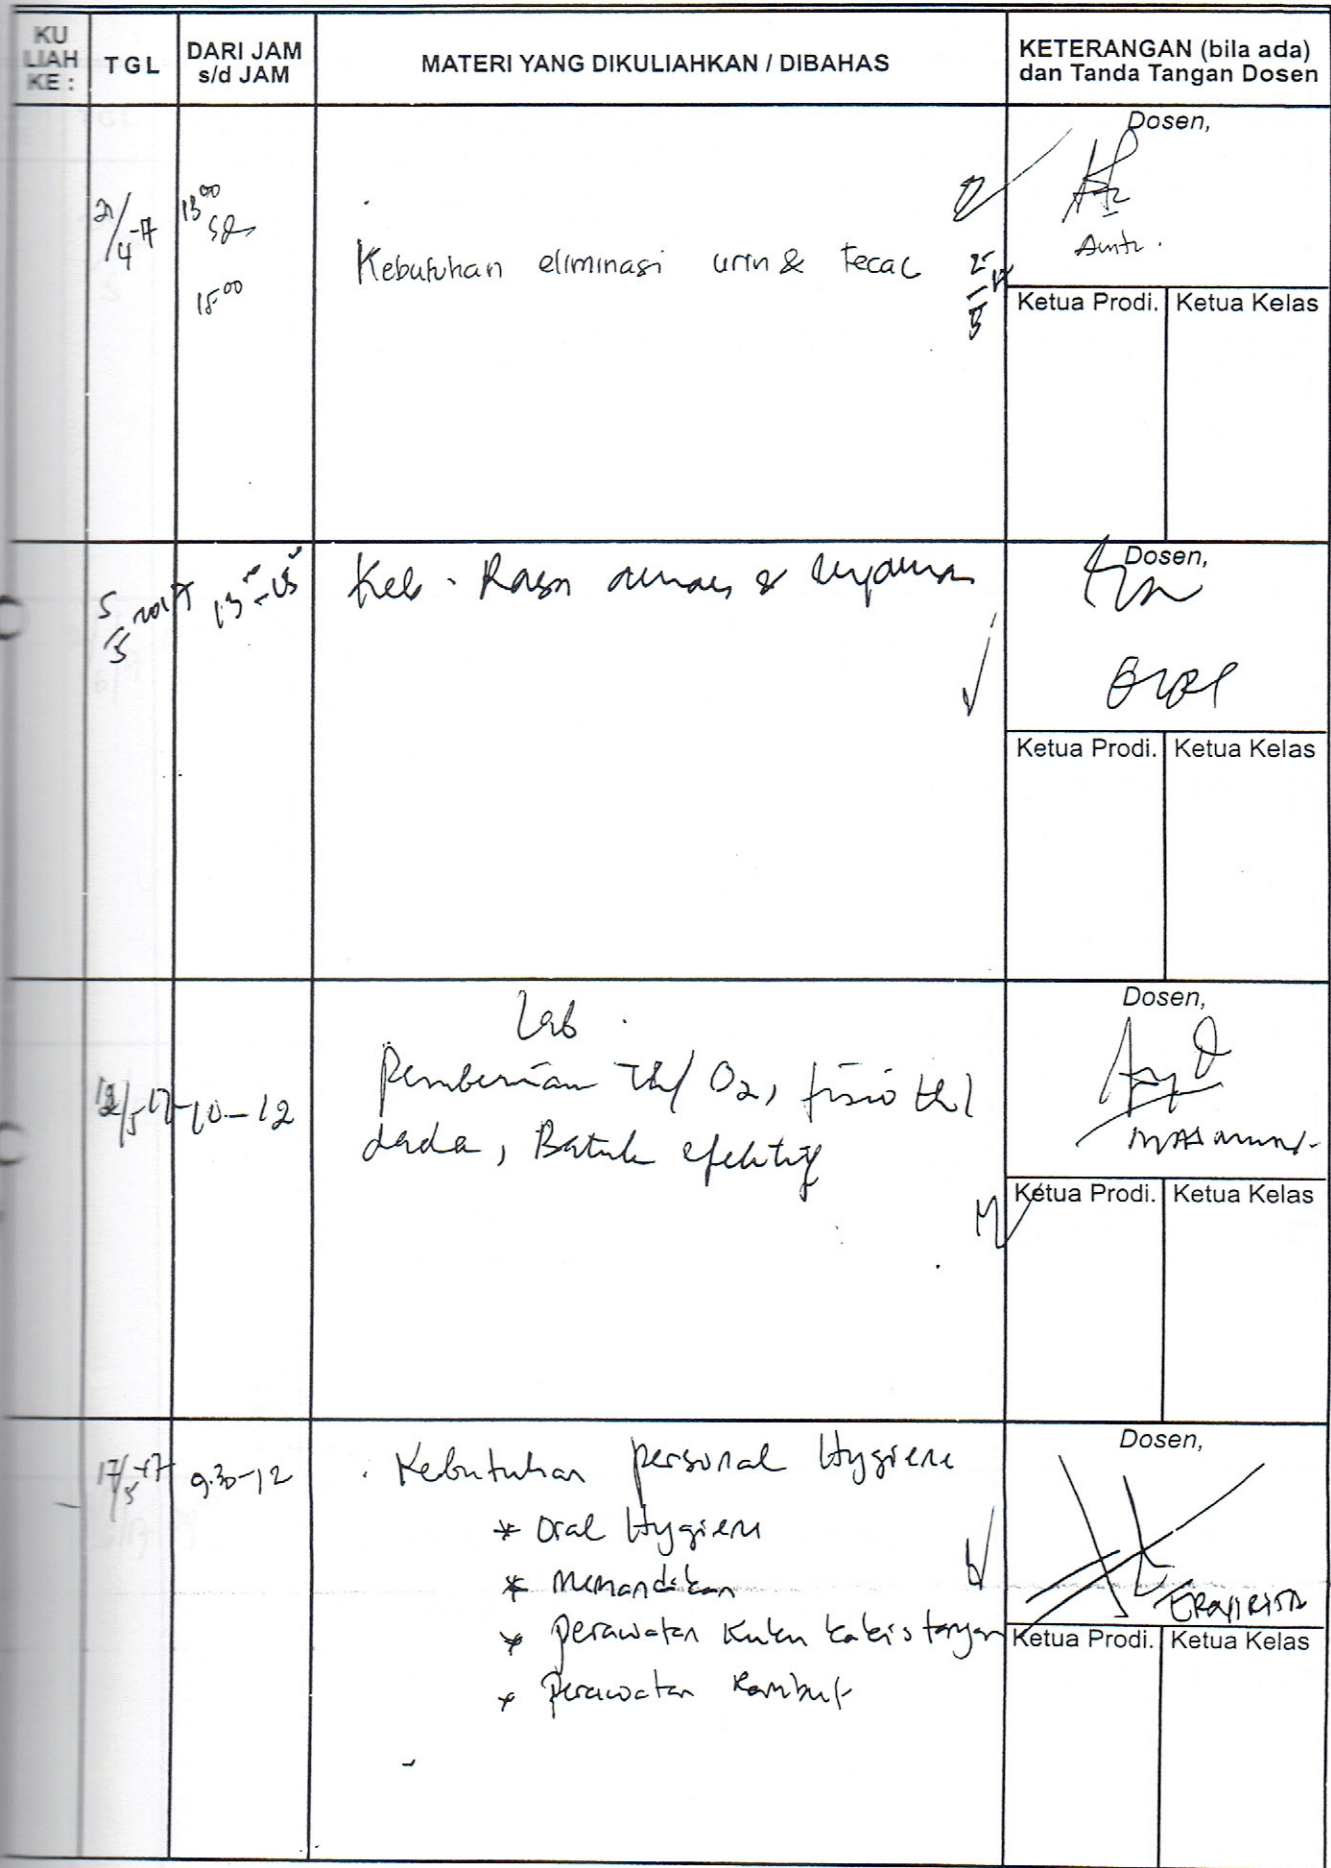 KU LIAH KE :
TGL
DARI JAM s/d JAM
MATERI YANG DIKULIAHKAN / DIBAHAS
KETERANGAN (bila ada) dan Tanda Tangan Dosen
21/4-17
13 00
15 00
Kebutuhan eliminasi urin & Fecal
Dosen,
Ketua Prodi.
Ketua Kelas
5/5 2017
13 00 - 15
Keb. Rasa aman & nyaman
Dosen,
Ketua Prodi.
Ketua Kelas
12/5 17
10-12
Lab.
Pemberian Th/ O2, fisio th/
dada, Batuk efektif
Dosen,
Ketua Prodi.
Ketua Kelas
17/5-17
9.30-12
Kebutuhan personal Hygiene
* Oral Hygiene
* Memandikan
* Perawatan Kuku kaki & tangan
* Perawatan Rambut
Dosen,
Ketua Prodi.
Ketua Kelas